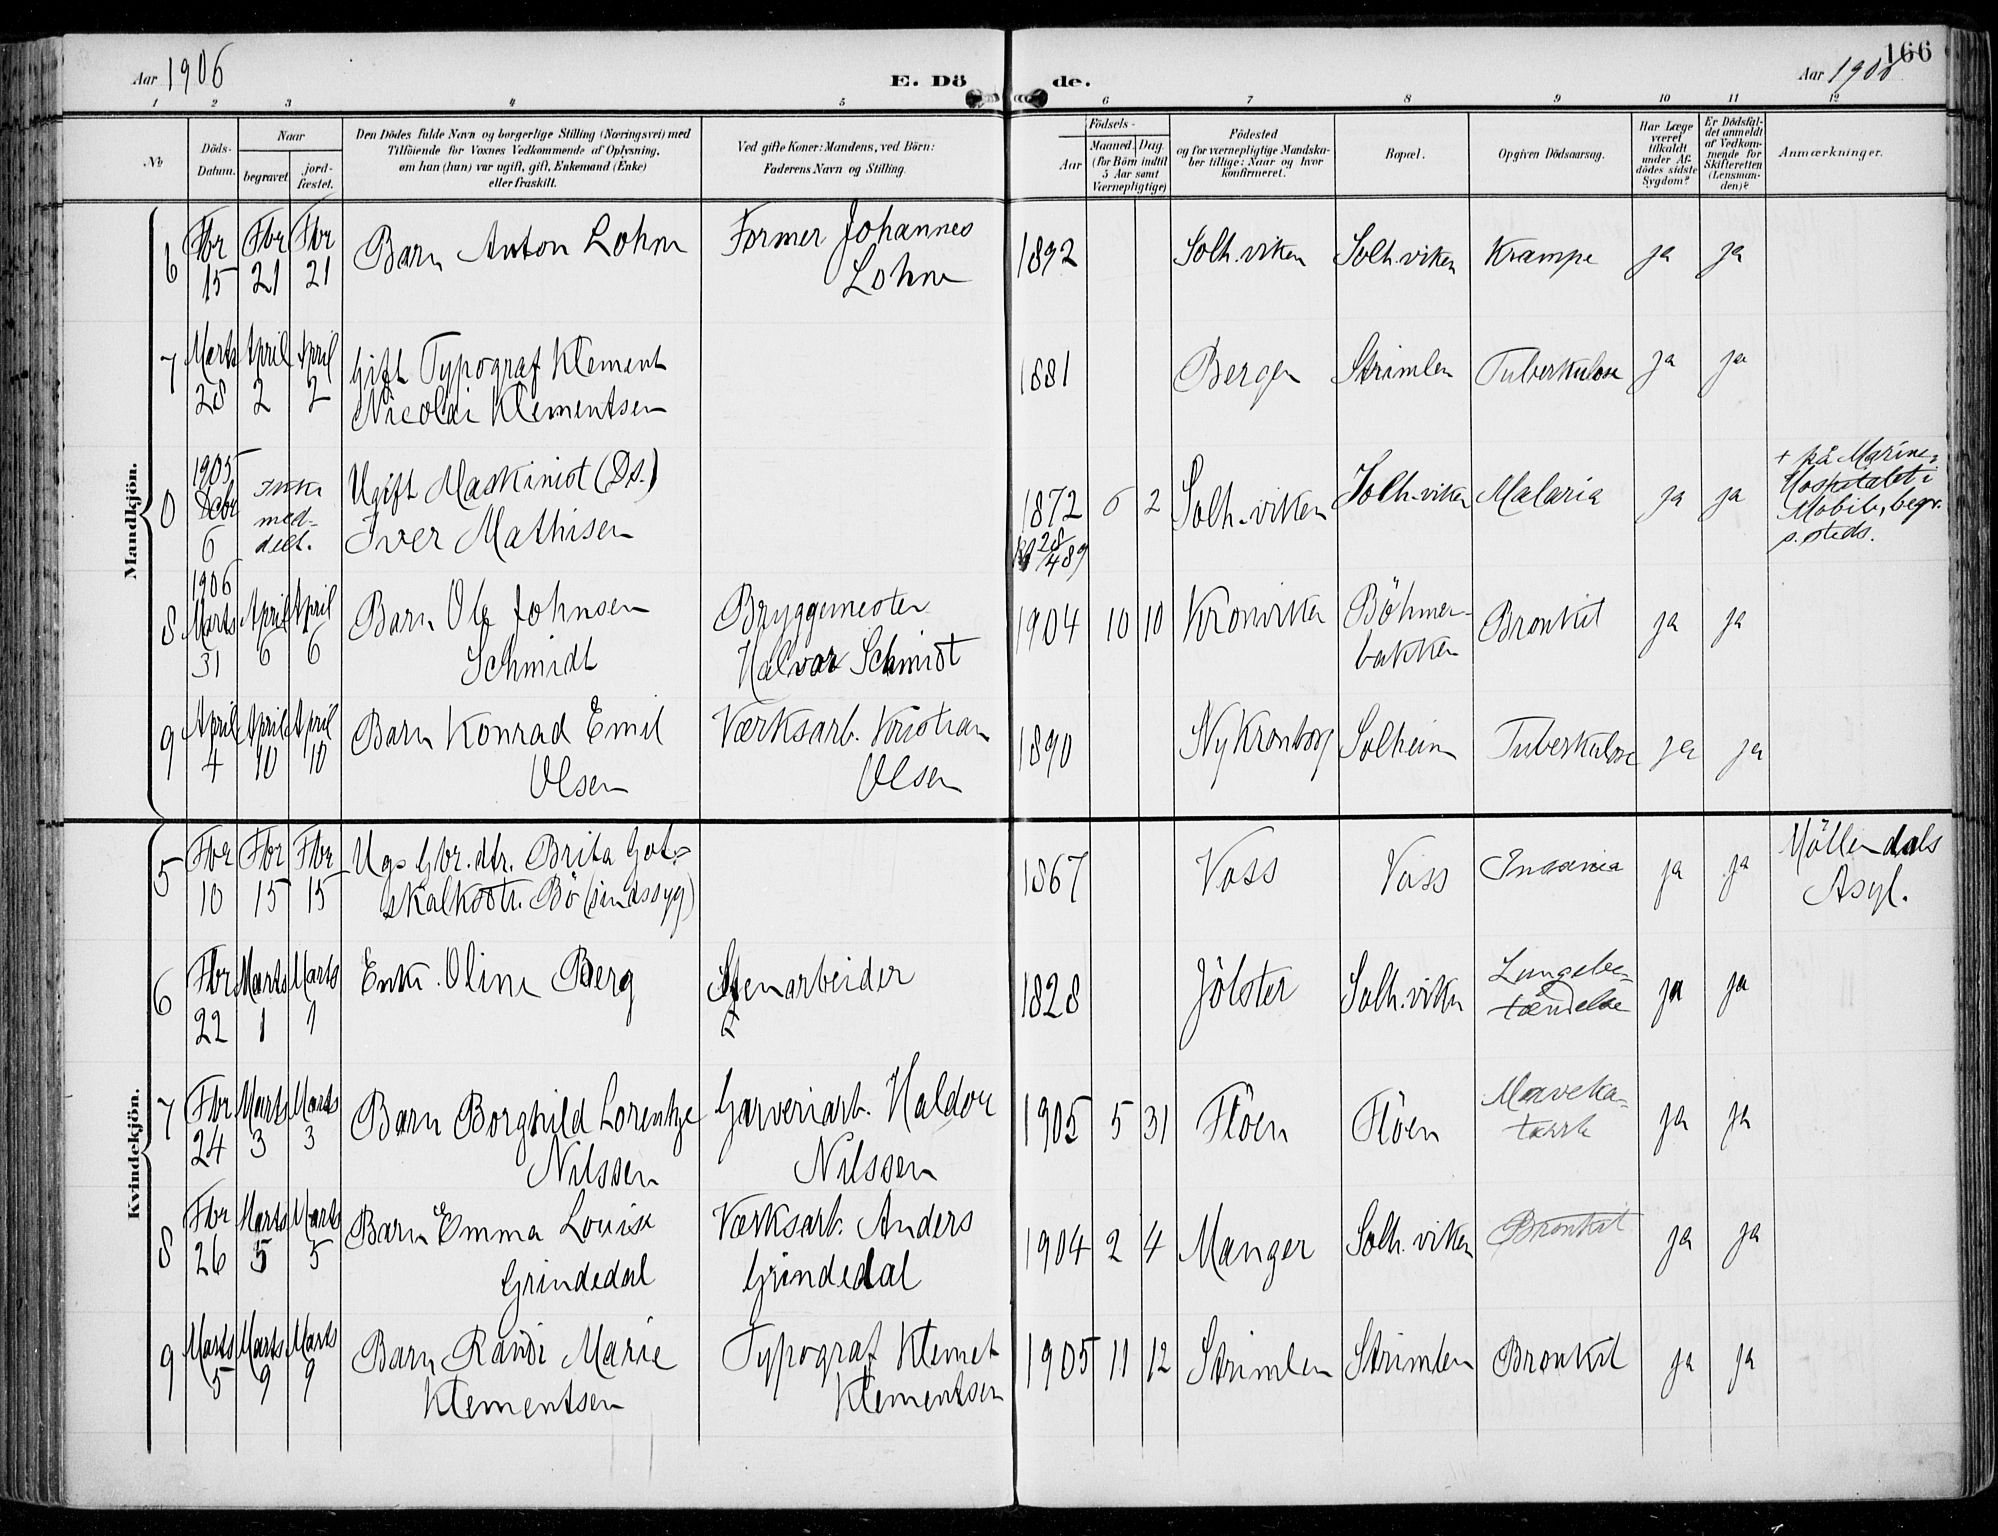 166
Aar 1906
E. Dö de.
Aar 1906
1 2 3 4 5 6 7 8 9 10 11 12
No
Döds-Datum.
Naar
begravet.
jord-fæstet.
Den Dödes fulde Navn og borgerlige Stilling (Næringsvei) med
Tilföiende for Voxnes Vedkommende af Oplysning,
om han (hun) var ugift, gift, Enkemand (Enke)
eller fraskilt.
Ved gifte Koner: Mandens, ved Börn:
Faderens Navn og Stilling.
Födsels-
Aar
Maaned. Dag.
(for Börn indtil
5 Aar samt
Værnepligtige)
Födested
og for værnepligtige Mandska-
ber tillige: Naar og hvor
konfirmeret.
Bopæl.
Opgiven Dödsaarsag.
Har Læge
været
tilkaldt
under Af-
dödes sidste
Sygdom?
Er Dödsfal-
det anmeldt
af Vedkom-
mende for
Skifteretten
(Lensman-
den)?
Anmærkninger.
Mandkjön.
6 Fbr 15 Fbr 21 Fbr 21 Barn Anton Lohne Former Johannes Lohne 1892 Solh.viken Solh.viken Krampe ja ja
7 Marts 28 April 2 April 2 Gift Typograf Klement
Nicolai Klementsen 1881 Bergen Strimlen Tuberkulose ja ja
0 1905 Debr 6 Ikke med-delt. Ugift Maskinist (Ds.)
Iver Mathisen 1872 6 2 28/4 89 Solh.viken Solh.viken Malaria ja ja + på Marine-
Hospitalet i
Mobile, begr.
s. steds.
8 1906 Marts 31 April 6 April 6 Barn Ole Johnsen
Schmidt Bryggemester
Halvor Schmidt 1904 10 10 Kronviken Böhmer-
bakken Bronkit ja ja
9 April 4 April 10 April 10 Barn Konrad Emil
Olsen Værksarb. Kristian
Olsen 1890 Ny Kronborg Solheim Tuberkulose ja ja
Kvindekjön.
5 Fbr 10 Fbr 15 Fbr 15 Ugs Gbr. dtr. Brita Got-
skalksdtr. Bö (sindssyg) 1867 Voss Voss Insania ja ja Möllendals
Asyl.
6 Fbr 22 Marts 1 Marts 1 Enke. Oline Berg Stenarbeider 1828 Jölster Solh.viken Lungebe-
tændelse ja ja
7 Fbr 24 Marts 3 Marts 3 Barn Borghild Lorentze
Nilssen Garveriarb. Haldor
Nilssen 1905 5 31 Flöen Flöen Maveka-
tarrh ja ja
8 Fbr 26 Marts 5 Marts 5 Barn Emma Louise
Grindedal Værksarb. Anders
Grindedal 1904 2 4 Manger Solh.viken Bronkit ja ja
9 Marts 5 Marts 9 Marts 9 Barn Randi Marie
Klementsen Typograf Klemet
Klementsen 1905 11 12 Strimlen Strimlen Bronkit ja ja